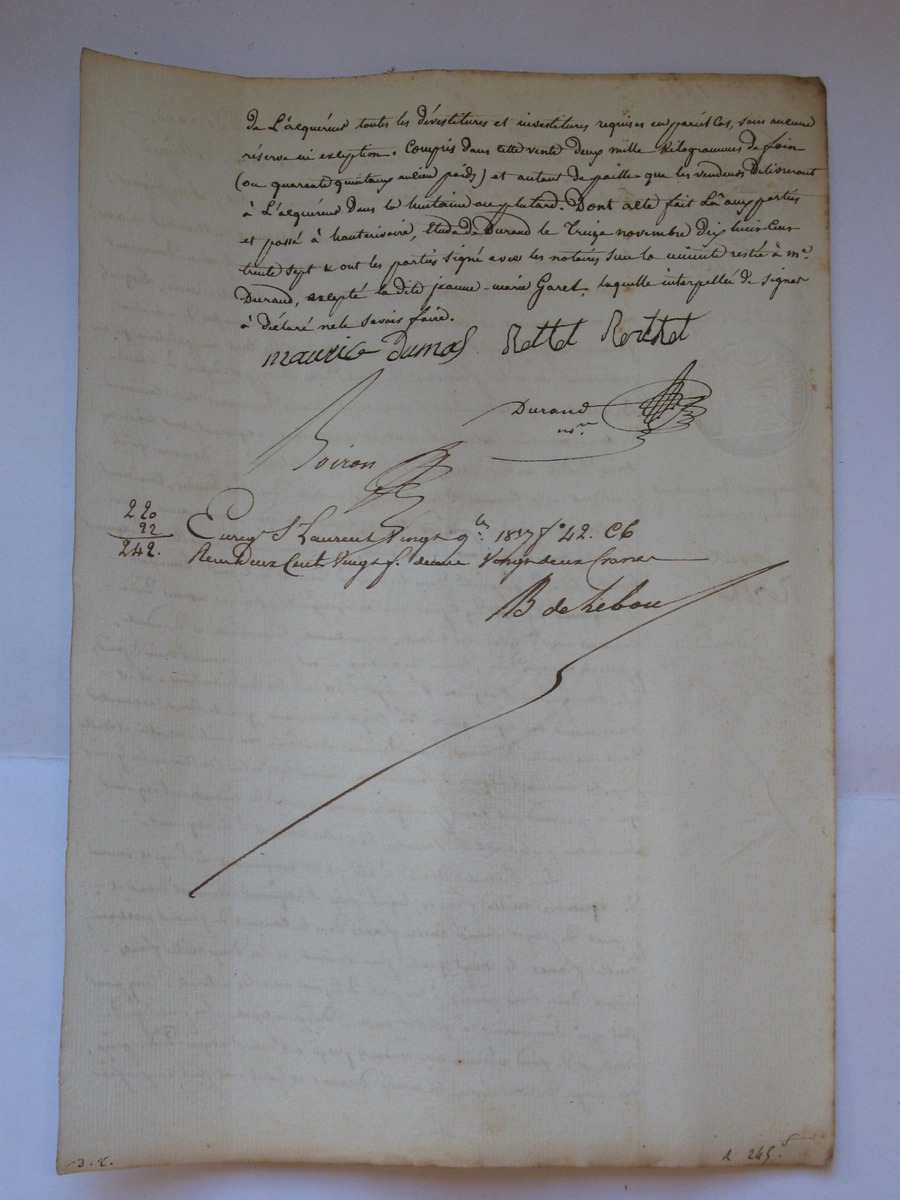 de L'acquéreur toutes les dévestitures et investitures requises en pareil Cas, sans aucune
réserve ni exception. Compris dans cette vente deux mille Kilogrammes de foin
(ou quarante quintaux ancien poids) et autant de paille que les vendeurs Délivreront
à L'acquéreur Dans la huitaine au plutard. Dont acte fait Lû aux parties
et passé à hauterivoire, Etude de Durand le Treize novembre Dix huit Cent
trente sept & ont les parties signé avec les notaires sur la minute restée à me.
Durand, excepté la dite jeanne-marie Garel, laquelle interpellée de signer
à déclaré ne le savoir faire.
maurice Dumas
Durand
nore
Boiron
220
22
242.
Enreg. St Laurent Vingt 9bre 1837 fo 42. C6
Reçu Deux Cent Vingt f. décime Vingt deux francs